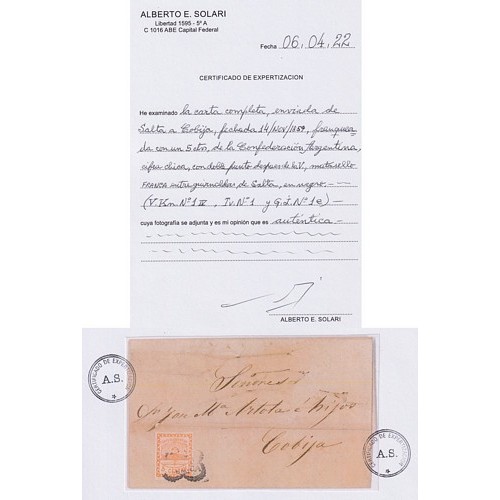 ALBERTO E. SOLARI
Libertad 1595 - 5º A
C 1016 ABE Capital Federal
Fecha 06.04.22
CERTIFICADO DE EXPERTIZACION
He examinado la carta completa, enviada de
Salta a Cobija, fechada 14/Nov/1859, franquea
da con un 5 ctvs. de la Confederación Argentina,
cifra chica, con doble punto despues de la V, matasello
FRANCA entre guirnaldas de Salta, en negro.
(V.Kn Nº 1 IV, Tv. Nº 1 y G.J. Nº 1 e)
cuya fotografía se adjunta y es mi opinión que es auténtica
ALBERTO E. SOLARI
CERTIFICADO DE EXPERTIZACION
A.S.
Señores
Dn Jose Ma Artola é hijos
Cobija
CERTIFICADO DE EXPERTIZACION
A.S.